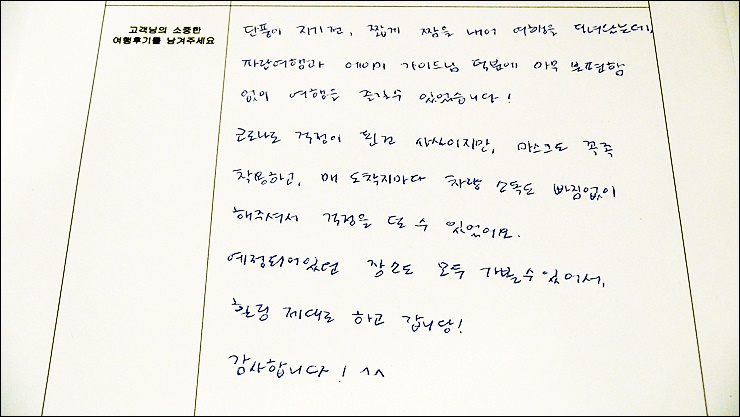 고객님의 소중한
여행후기를 남겨주세요
단풍이 지기전, 짧게 짬을 내어 여행을 다녀왔는데,
파란여행과 에이미 가이드님 덕분에 아무 불편함
없이 여행을 즐길수 있었습니다!
코로나로 걱정이 된건 사실이지만, 마스크도 꼭꼭
착용하고, 매 도착지마다 차량 소독도 빠짐없이
해주셔서 걱정을 덜 수 있었어요.
예정되어있던 장소도 모두 가볼수있어서,
힐링 제대로 하고 갑니당!
감사합니다! ^^